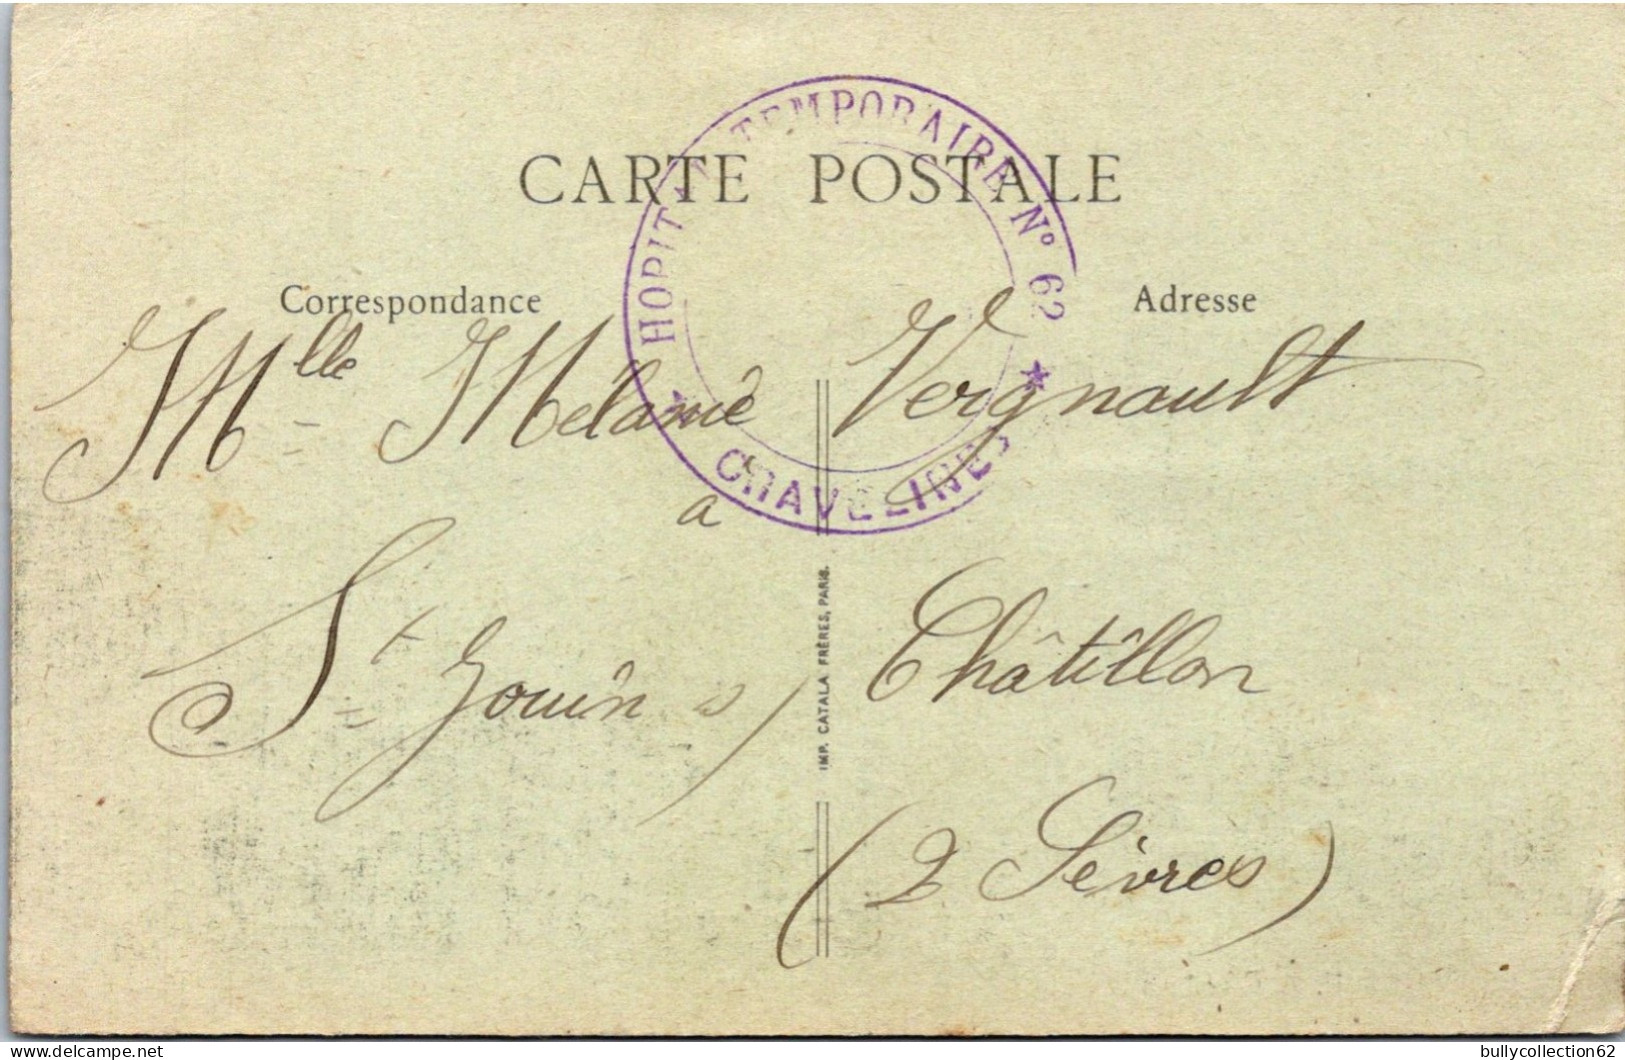 CARTE POSTALE
HOPITAL TEMPORAIRE N° 62
★ GRAVELINES ★
Correspondance
Adresse
Mlle Mélanie Vergnault
a
St Jouin s/ Châtillon
(2 Sèvres)
IMP. CATALA FRÈRES, PARIS.
delcampe.net
bullycollection62